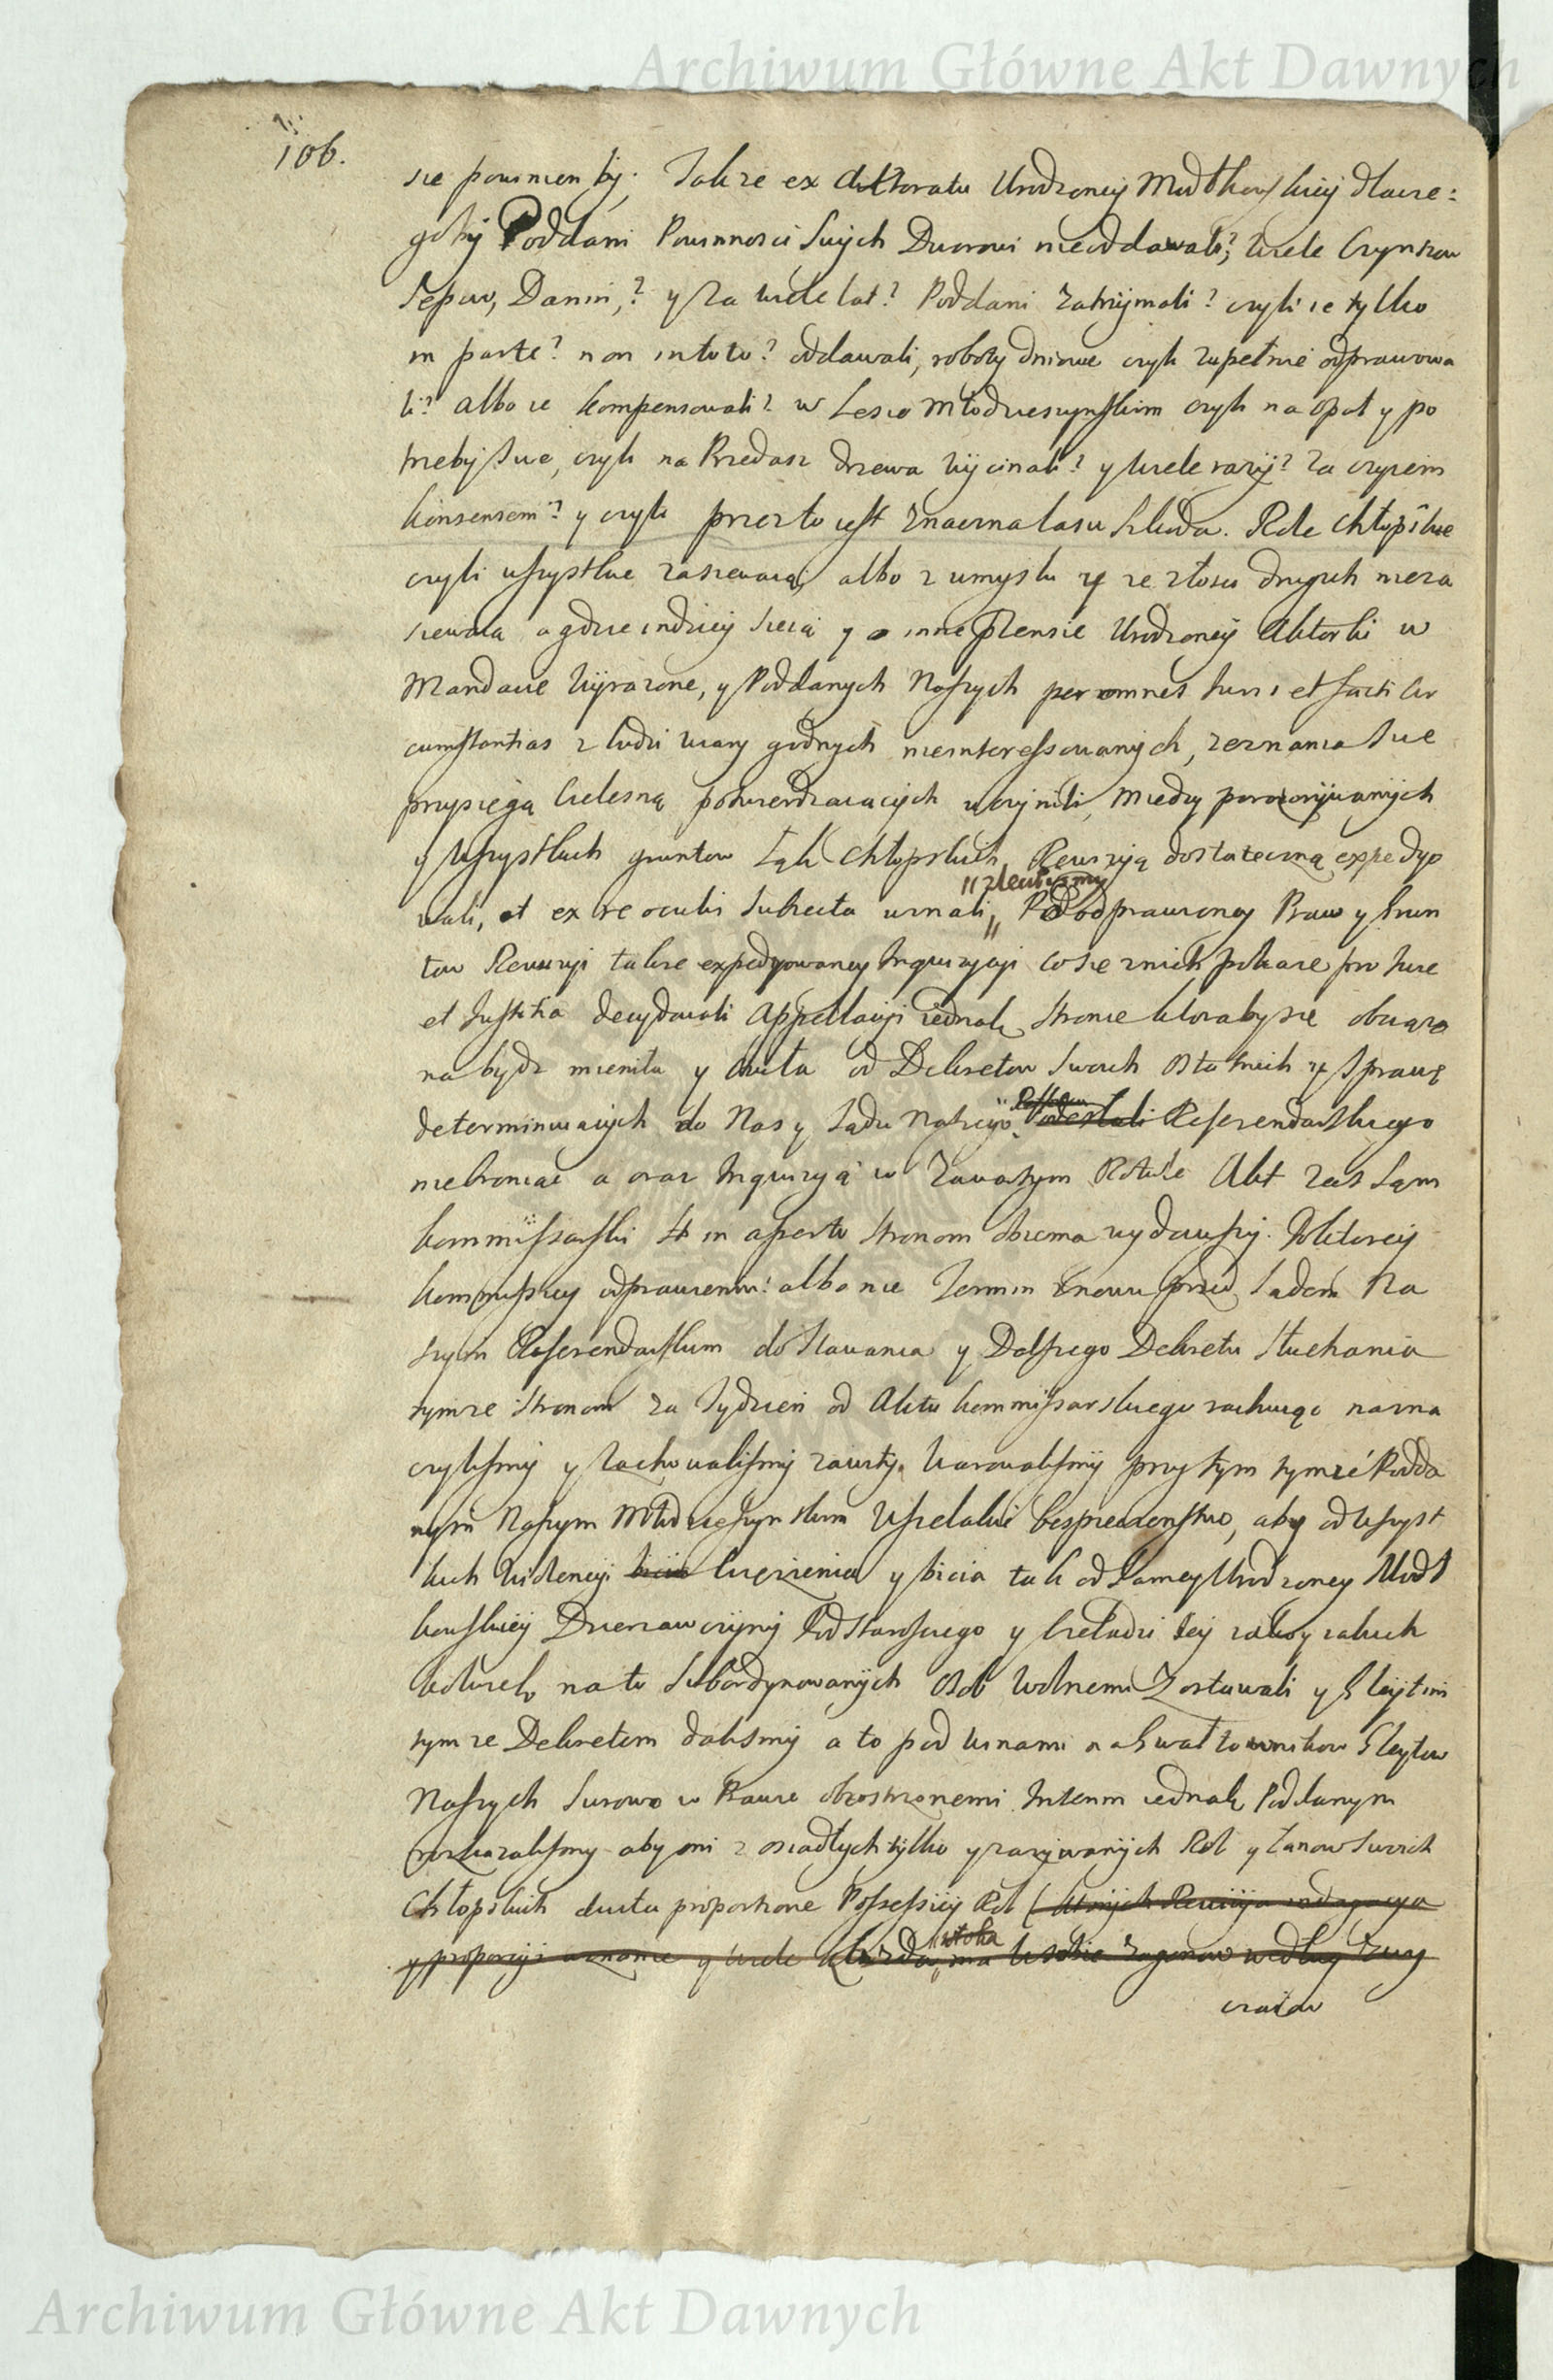 Archiwum Główne Akt Dawnych
106.
sie powinien by; Także ex diktoratu Urodzoney Modtkowskiey dlacze:
goby Poddani Powinnosci Swych Dworowi nieoddawali? wiele Czynszow
Sepow, Danin,? y za wiele lat? Poddani zatrzymali? czyli ie tylko
in parte? non in toto? oddawali, roboty dniowe czyli zupełnie odprawowa
li? albo ie kompensowali? w Lesie Młodzieszynskim czyli na opał y po
trzeby Swe, czyli na Przedasz drzewa wycinali? y wiele razy? za czyiem
konsensem? y czyli przez to iest znaczna lasu szkoda. Role chłopskie
czyli wszystkie zasiewaią, albo z umysłu y ze złosci drugich nieza
siewaią a gdzieindziey sieią y o inne Pretensie Urodzoney Aktorki w
Mandacie wyrażone, y Poddanych Naszych per omnes Juris et facti cir
cumstantias z ludzi wiary godnych nieinteressowanych, zeznania Swe
przysięgą cielesną potwierdzaiących uczynili, Miedzy porozorywanych
y Wszystkich gruntow Łąk chłopskich, Rewizyą dostateczną expedyo
wali, et ex re oculis Subiecta uznali, Po odprawioney Praw y Grun
"zleciliśmy
tow Rewizyi także expedyowaney Inquizycyi co sie z nich pokaze pro Jure
et Justitia decydowali Appellacyi iednak Stronie ktoraby sie obciążo
na bydz mieniła y chciała od Dekretow Swoich ostatnich y Sprawę
determinuiących do Nas y Sądu Naszego Referendarskiego
niebroniąc a oraz Inquizycyą w Zawartym Rotule Akt zas Sam
kommissarski in aperto Stronom obiema wydawszy. Po ktorey
kommissyi odprawieniu: albo nie Termin znowu przed Sądem Na
szym Referendarskim do Stawania y Dalszego Dekretu Słuchania
tymze Stronom za Tydzien od Aktu kommissarskiego rachuiąc nazna
czylismy y zachowalismy zawity. Warowalismy przytym tymze Podda
nym Naszym Młodzieszynskim Wszelakie bespieczenstwo, aby od wszyst
kich wiolencyi bicia Więzienia y bicia tak od Samey Urodzoney Modt
kowskiey Dzierzawczyney Podstaroscego y czeladzi iey iako y iakich
kolwiek na to Subordynowanych Osob wolnemi Zostawali y Gleytem
tymze Dekretem dalismy a to pod winami na Gwałtownikow Gleytow
Naszych Surowo w Prawie obostrzonemi. Interim iednak Poddanym
rozkazalismy aby oni z osiadłych tylko y zazywanych Rol y Łanow Swoich
Chłopskich ducta proportione Possessyey Rol ( ktorych Rewizya indagacya
y proporcyi uznanie y wiele kazda "włoka ma w sobie zagonow według zwy
czaiow
Archiwum Główne Akt Dawnych